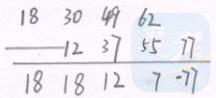 18 30 49 62
12 37 55 77
18 18 12 7 -77